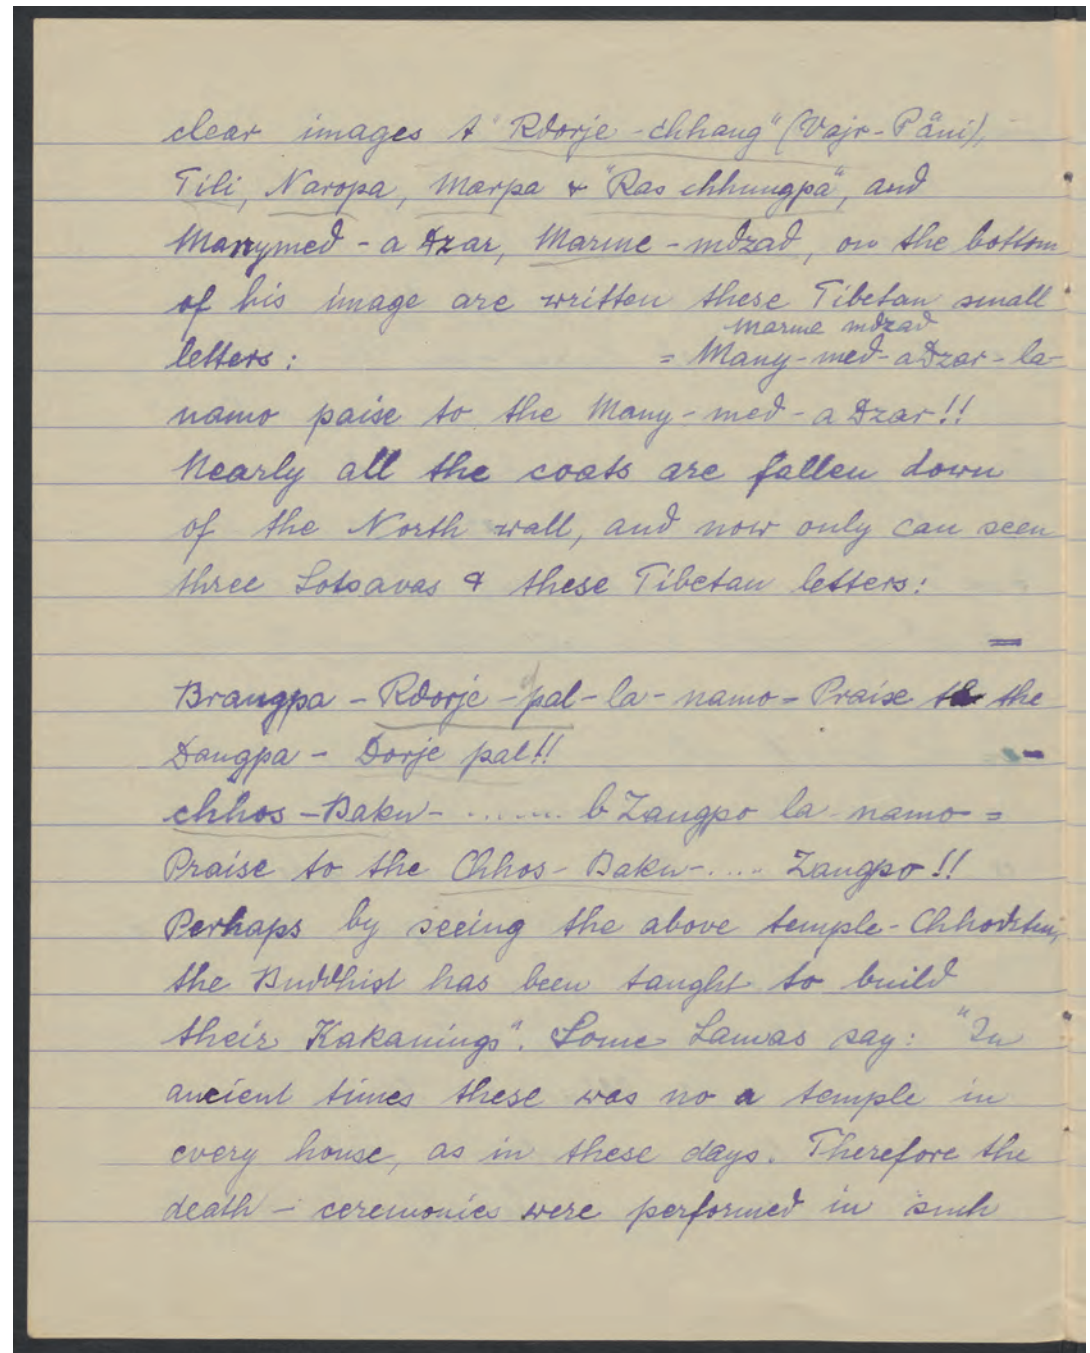 clear images & "Rdorje - chhang" (Vajr - Päni),
Tili, Naropa, Marpa & "Ras chhungpa", and
Manymed - a Dzar, Marme - mdzad, on the bottom
of his image are written these Tibetan small
marme mdzad
letters : = Many - med - a Dzar - la -
namo paise to the Many - med - a Dzar !!
Nearly all the coats are fallen down
of the North wall, and now only can seen
three Lotsavas & these Tibetan letters :
Brangpa - Rdorje - pal - la - namo = Praise to the
Dangpa - Dorje pal !!
chhos - Baku - ....... b Zangpo la namo =
Praise to the Chhos - Baku - .... Zangpo !!
Perhaps by seeing the above temple - Chhodsten,
the Buddhist has been taught to build
their Kakanings". Some Lamas say : "In
ancient times these was no a temple in
every house, as in these days. Therefore the
death - ceremonies were performed in such